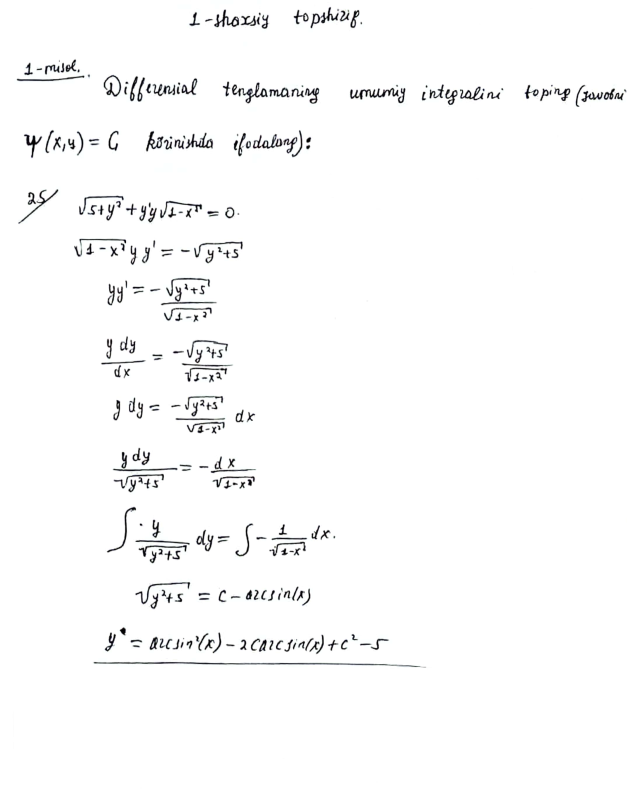 1-shaxsiy topshiriq.
1-misol. Differensial tenglamaning umumiy integralini toping (javobni
ψ(x,y) = C ko'rinishda ifodalang):
25 √5+y² + y'y√1-x² = 0.
√1-x² y y' = -√y²+5
yy' = - √y²+5 / √1-x²
y dy / dx = -√y²+5 / √1-x²
y dy = -√y²+5 / √1-x² dx
y dy / √y²+5 = -dx / √1-x²
∫ y / √y²+5 dy = ∫ - 1 / √1-x² dx.
√y²+5 = C - arcsin(x)
y² = arcsin²(x) - 2C arcsin(x) + C² - 5